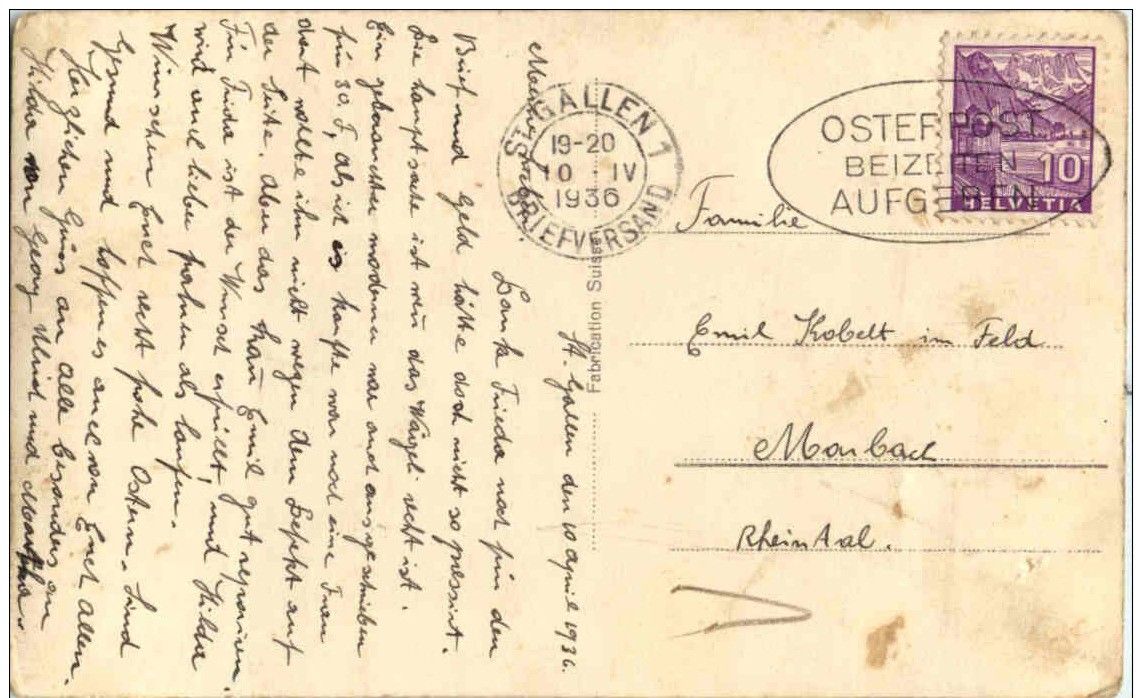 St. Gallen den 10 April 1936.
Meine Lieben!
Danke Frieda noch für den
Brief und Geld hätte doch nicht so pressirt.
Die hauptsache ist wen das Wägeli recht ist.
Ein gebrauchter moderner war auch ausgeschrieben
für 30.f, als ich es kaufte war noch eine Frau
dort wollte ihn nicht wegen dem Deppt auf
der Seite. aber das kan Emil gut reparieren.
Für Frida ist der Wunsch erfüllt, und Hilda
wird auch lieber fahren als laufen.
Wünschen Euch recht frohe Ostern. Sind
Gesund und hoffen es auch von Euch Allen.
Herzlichen Grüss an Alle besonders an
Hilda von Georg Ulrich und Martha.
ST. GALLEN 1
19-20
10 IV
1936
BRIEFVERSAND
OSTERPOST
BEIZEITEN
AUFGEBEN
10
HELVETIA
Fabrication Suisse
Familie
Emil Kobelt im Feld
Marbach
Rheintal.